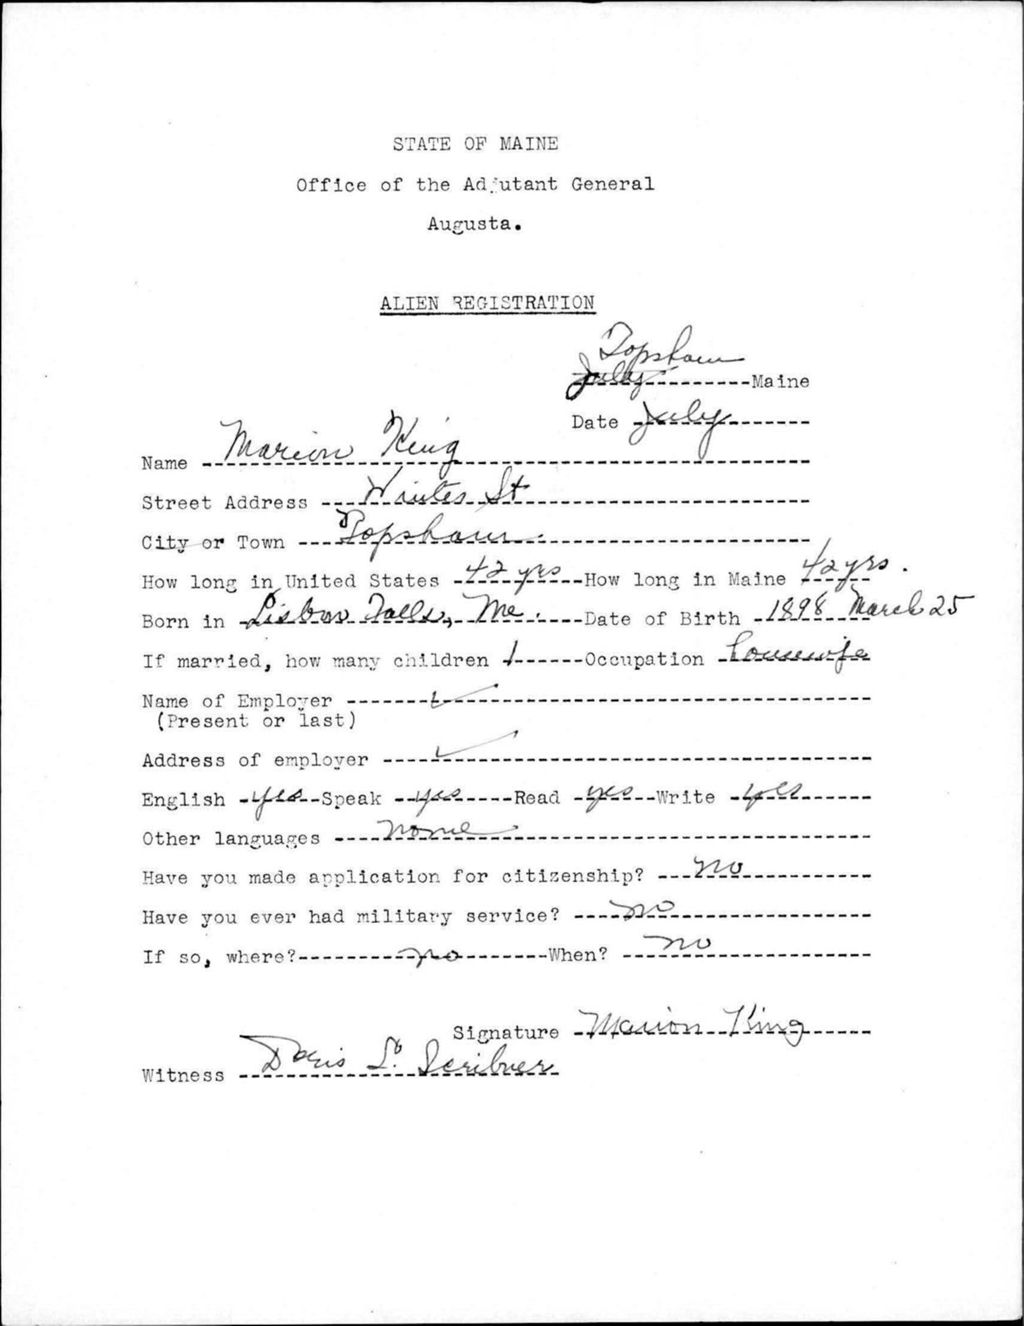 STATE OF MAINE
Office of the Adjutant General
Augusta.
ALIEN REGISTRATION
Topsham
July Maine
Date July
Name Marion King
Street Address Winter St
City or Town Topsham
How long in United States 42 yrs How long in Maine 42 yrs.
Born in Lisbon Falls, Me. Date of Birth 1898 March 25
If married, how many children 1 Occupation housewife
Name of Employer ✓
(Present or last)
Address of employer ✓
English yes Speak yes Read yes Write yes
Other languages none
Have you made application for citizenship? no
Have you ever had military service? no
If so, where? no When? no
Signature Marion King
Witness Doris L. Scribner